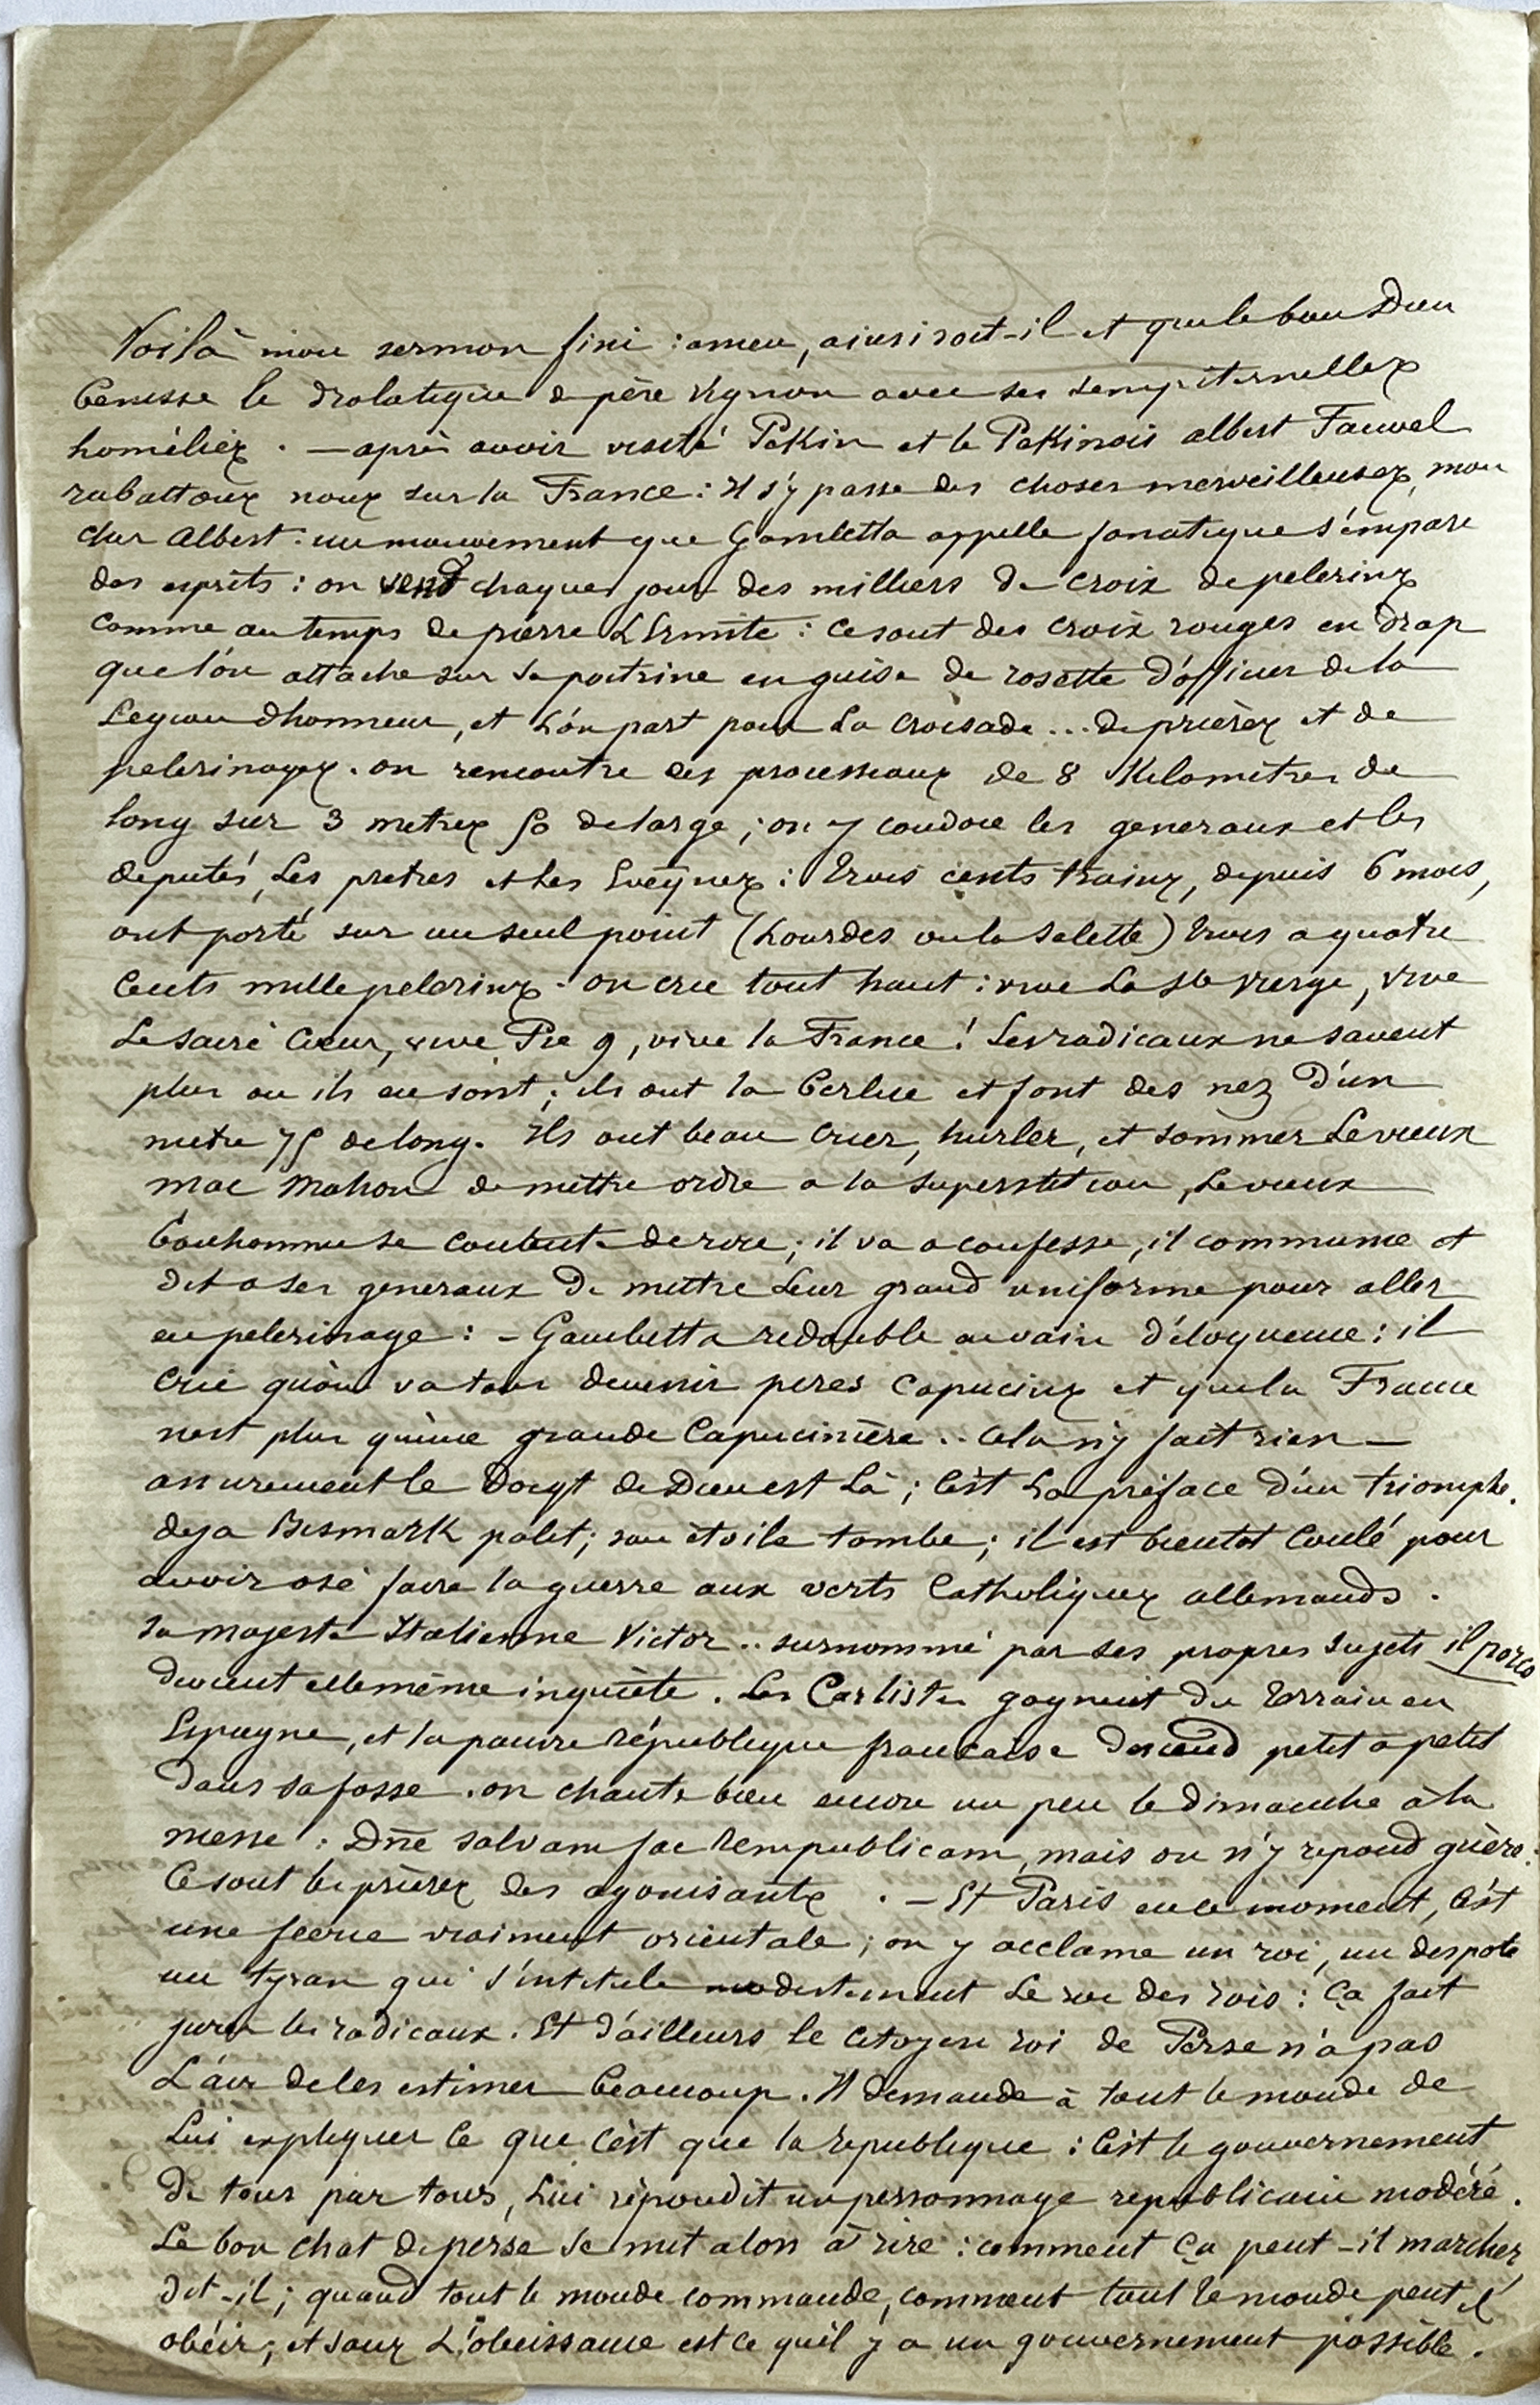 Voilà mon sermon fini : amen, ainsi soit-il et que le bon Dieu
benisse le drolatique père Vignon avec ses sempiternelles
homélies . — après avoir visité Pékin et le Pékinois albert Fauvel
rabattons nous sur la France : Il s'y passe des choses merveilleuses, mon
cher Albert : un mouvement que Gambetta appelle fanatique s'empare
des esprits : on vend chaque jour des milliers de croix de pelerins
comme au temps de pierre L'Ermite : ce sont des croix rouges en drap
que l'on attache sur sa poitrine en guise de rosette d'officier de la
Legion d'honneur, et l'on part pour la croisade ... de prières et de
pelerinages . on rencontre des processions de 8 Kilometres de
long sur 3 metres 50 de large ; on y coudoie les generaux et les
deputés, Les pretres et les Eveques : trois cents trains, depuis 6 mois,
ont porté sur un seul point (Lourdes ou la Salette) trois a quatre
cents mille pelerins . on crie tout haut : vive La Ste Vierge, vive
Le sacré Coeur, vive Pie 9, vive la France ! Les radicaux ne savent
plus ou ils en sont ; ils ont la berlue et font des nez d'un
metre 75 de long . Ils ont beau crier, hurler, et sommer Le vieux
mac Mahon de mettre ordre a la superstition, Le vieux
bonhomme se contente de rire ; il va a confesse, il communie et
dit a ses generaux de mettre leur grand uniforme pour aller
en pelerinage : — Gambetta redouble en vain d'éloquence : il
crie qu'on va tous devenir peres Capucins et que la France
n'est plus qu'une grande Capucinière .. Cela n'y fait rien —
assurement le doigt de Dieu est Là ; C'est La préface d'un triomphe.
deja Bismark palit ; son étoile tombe ; il est bientot coulé pour
avoir osé faire la guerre aux verts Catholiques allemands .
Sa majesté Italienne Victor .. surnommé par ses propres sujets il porco
devient elle même inquiète . Les Carlistes gagnent du terrain en
Espagne, et la pauvre république francaise descend petit à petit
dans sa fosse . on chante bien encore un peu le dimanche à la
messe : Dñe salvam fac Rempublicam, mais on n'y repond guère :
Ce sont les prières des agonisants . — Et Paris en ce moment, C'est
une feerie vraiment orientale ; on y acclame un roi, un despote
un tyran qui s'intitule modestement Le roi des rois : Ça fait
jurer les radicaux . Et d'ailleurs le Citoyen roi de Perse n'a pas
L'air de les estimer beaucoup . Il demande à tout le monde de
Lui expliquer Ce que C'est que la republique : C'est le gouvernement
de tous par tous, Lui répondit un personnage republicain modéré .
Le bon chat de perse se mit alors à rire : comment Ça peut-il marcher
dit-il ; quand tout le monde commande, comment tout le monde peut il
obéir ; et sans L'obeissance est ce qu'il y a un gouvernement possible .